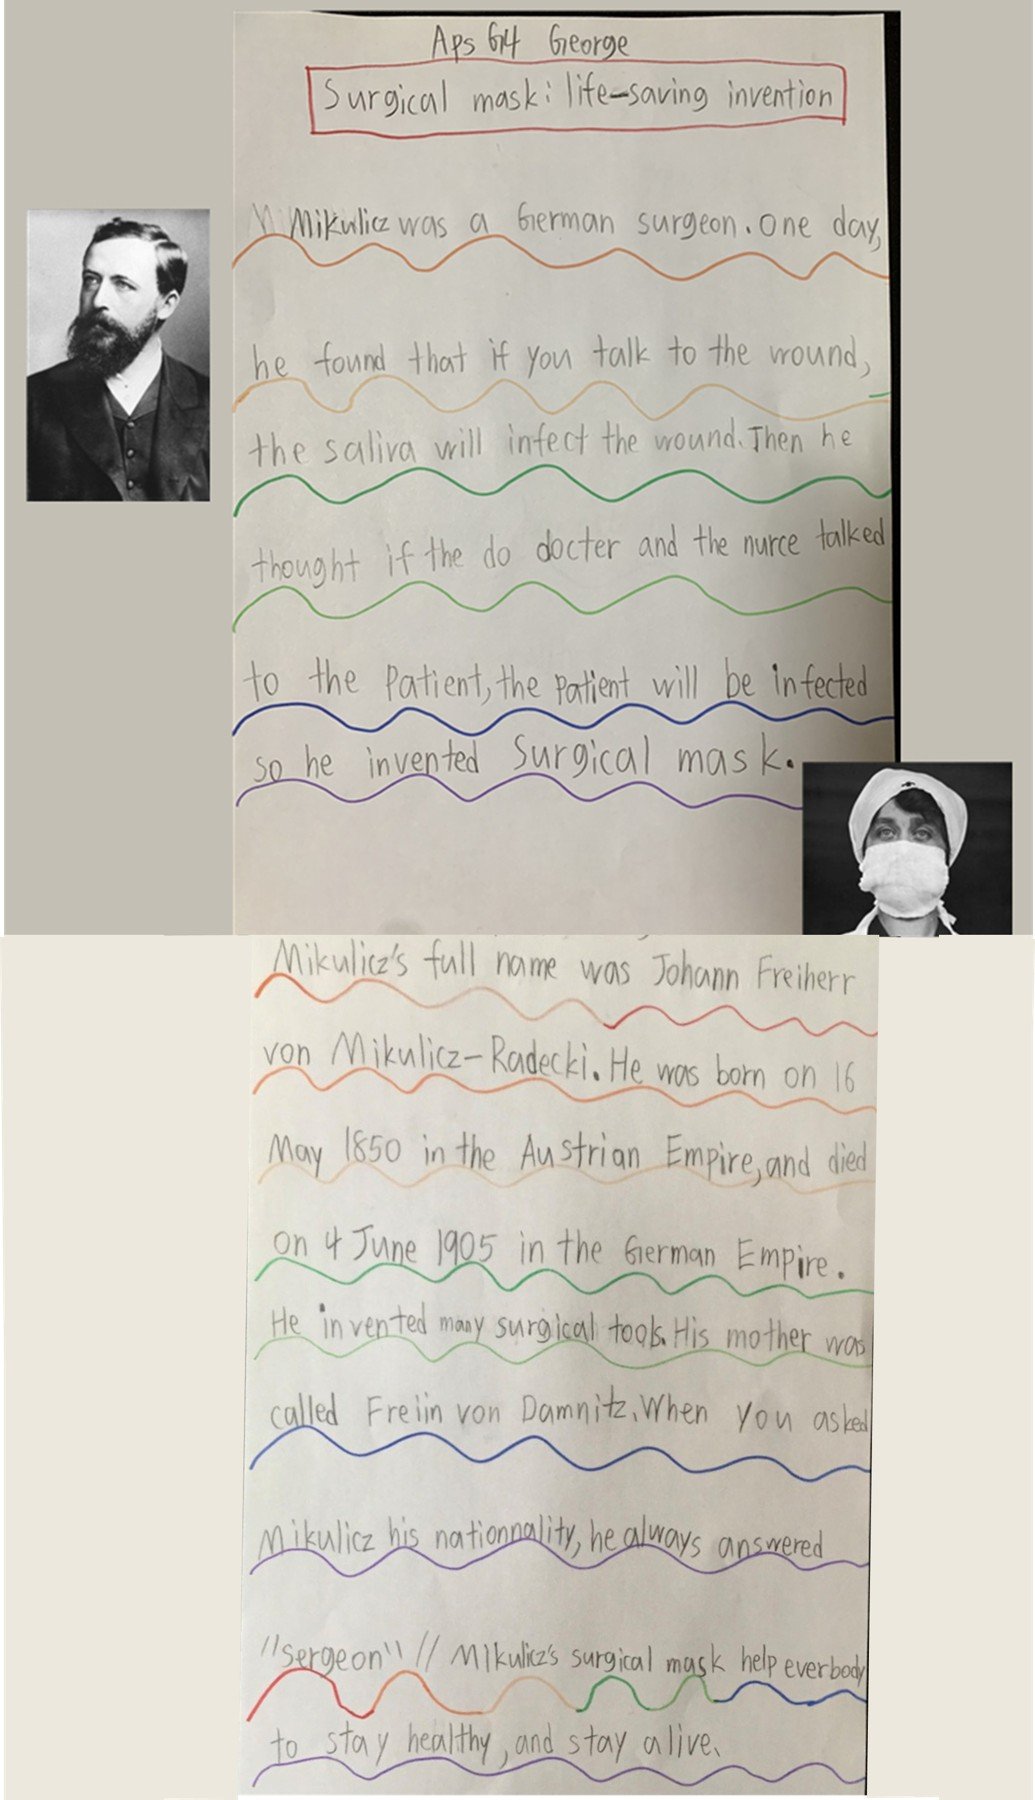 Aps G4 George
Surgical mask: life-saving invention
Mikulicz was a German surgeon. One day,
he found that if you talk to the wound,
the saliva will infect the wound. Then he
thought if the do docter and the nurce talked
to the Patient, the patient will be infected
so he invented Surgical mask.
Mikulicz's full name was Johann Freiherr
von Mikulicz-Radecki. He was born on 16
May 1850 in the Austrian Empire, and died
on 4 June 1905 in the German Empire.
He invented many surgical tools. His mother was
called Freiin von Damnitz. When you asked
Mikulicz his nationnality, he always answered
"sergeon" // Mikulicz's surgical mask help everbody
to stay healthy, and stay alive.